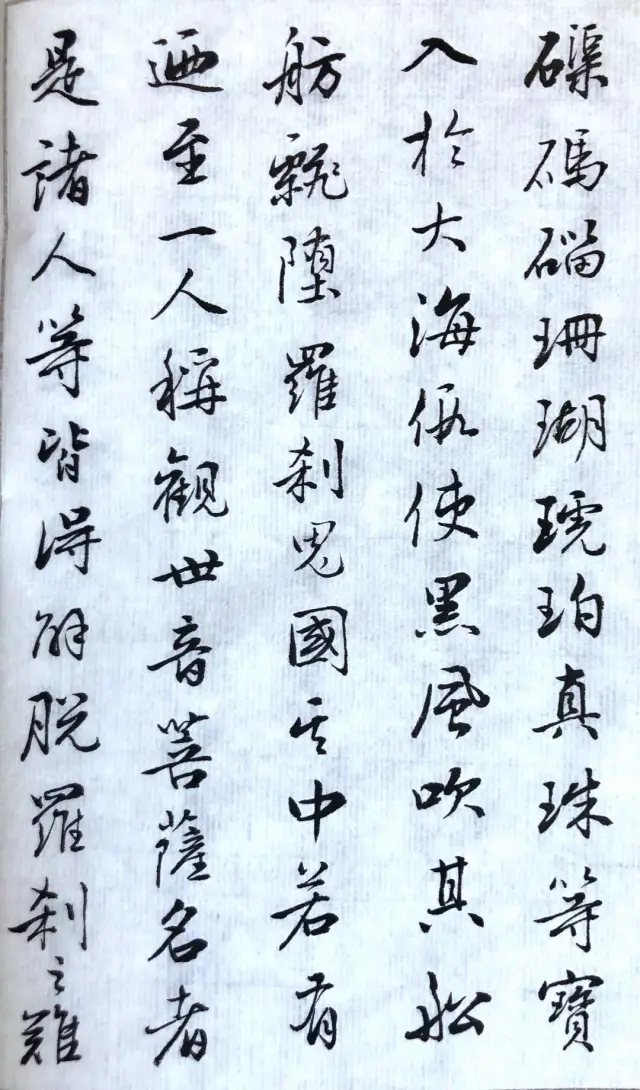 磲碼碯珊瑚琥珀真珠等寶
入於大海假使黑風吹其船
舫飄墮羅刹鬼國其中若有
迺至一人稱觀世音菩薩名者
是諸人等皆得解脫羅刹之難